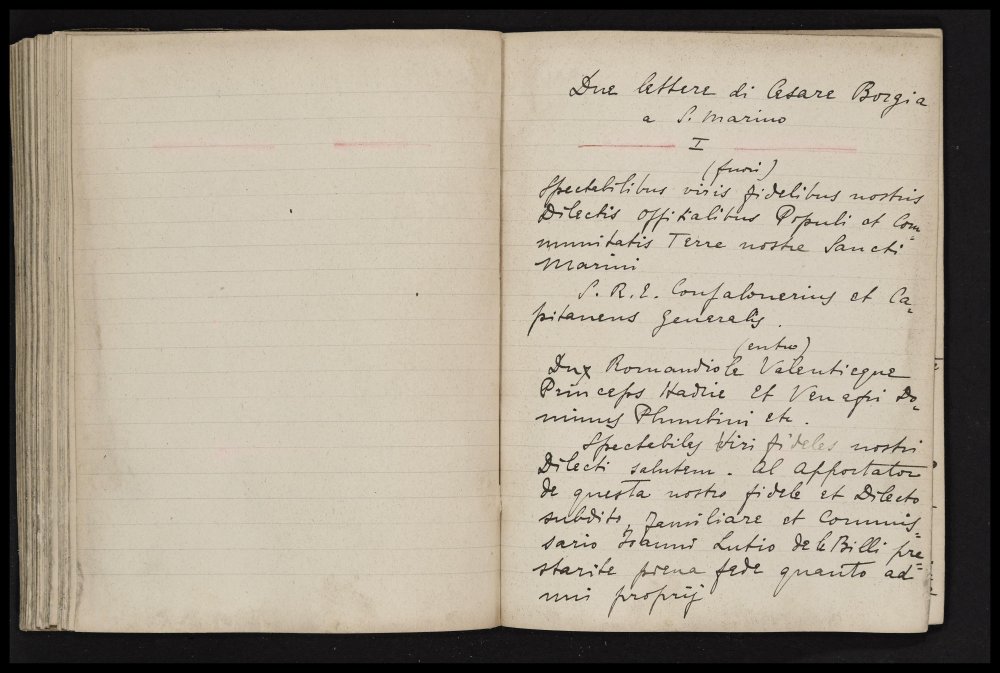 Due lettere di Cesare Borgia
a S. Marino
I
(fuori)
Spectabilibus viris fidelibus nostris
Dilectis offitialibus Populi et Com=
munitatis Terre nostre Sancti
Marini
S. R. E. Confalonerius et Ca=
pitaneus generalis.
(entro)
Dux Romandiole Valentieque
Princeps Hadrie et Venafri Do=
minus Plumbini etc.
Spectabiles Viri fideles nostri
Dilecti salutem. Al apportator
de questa nostro fidele et Dilecto
subdito, familiare et Commis=
sario Joanni Lutio de le Billi pre=
starite piena fede quanto ad
mii proprij